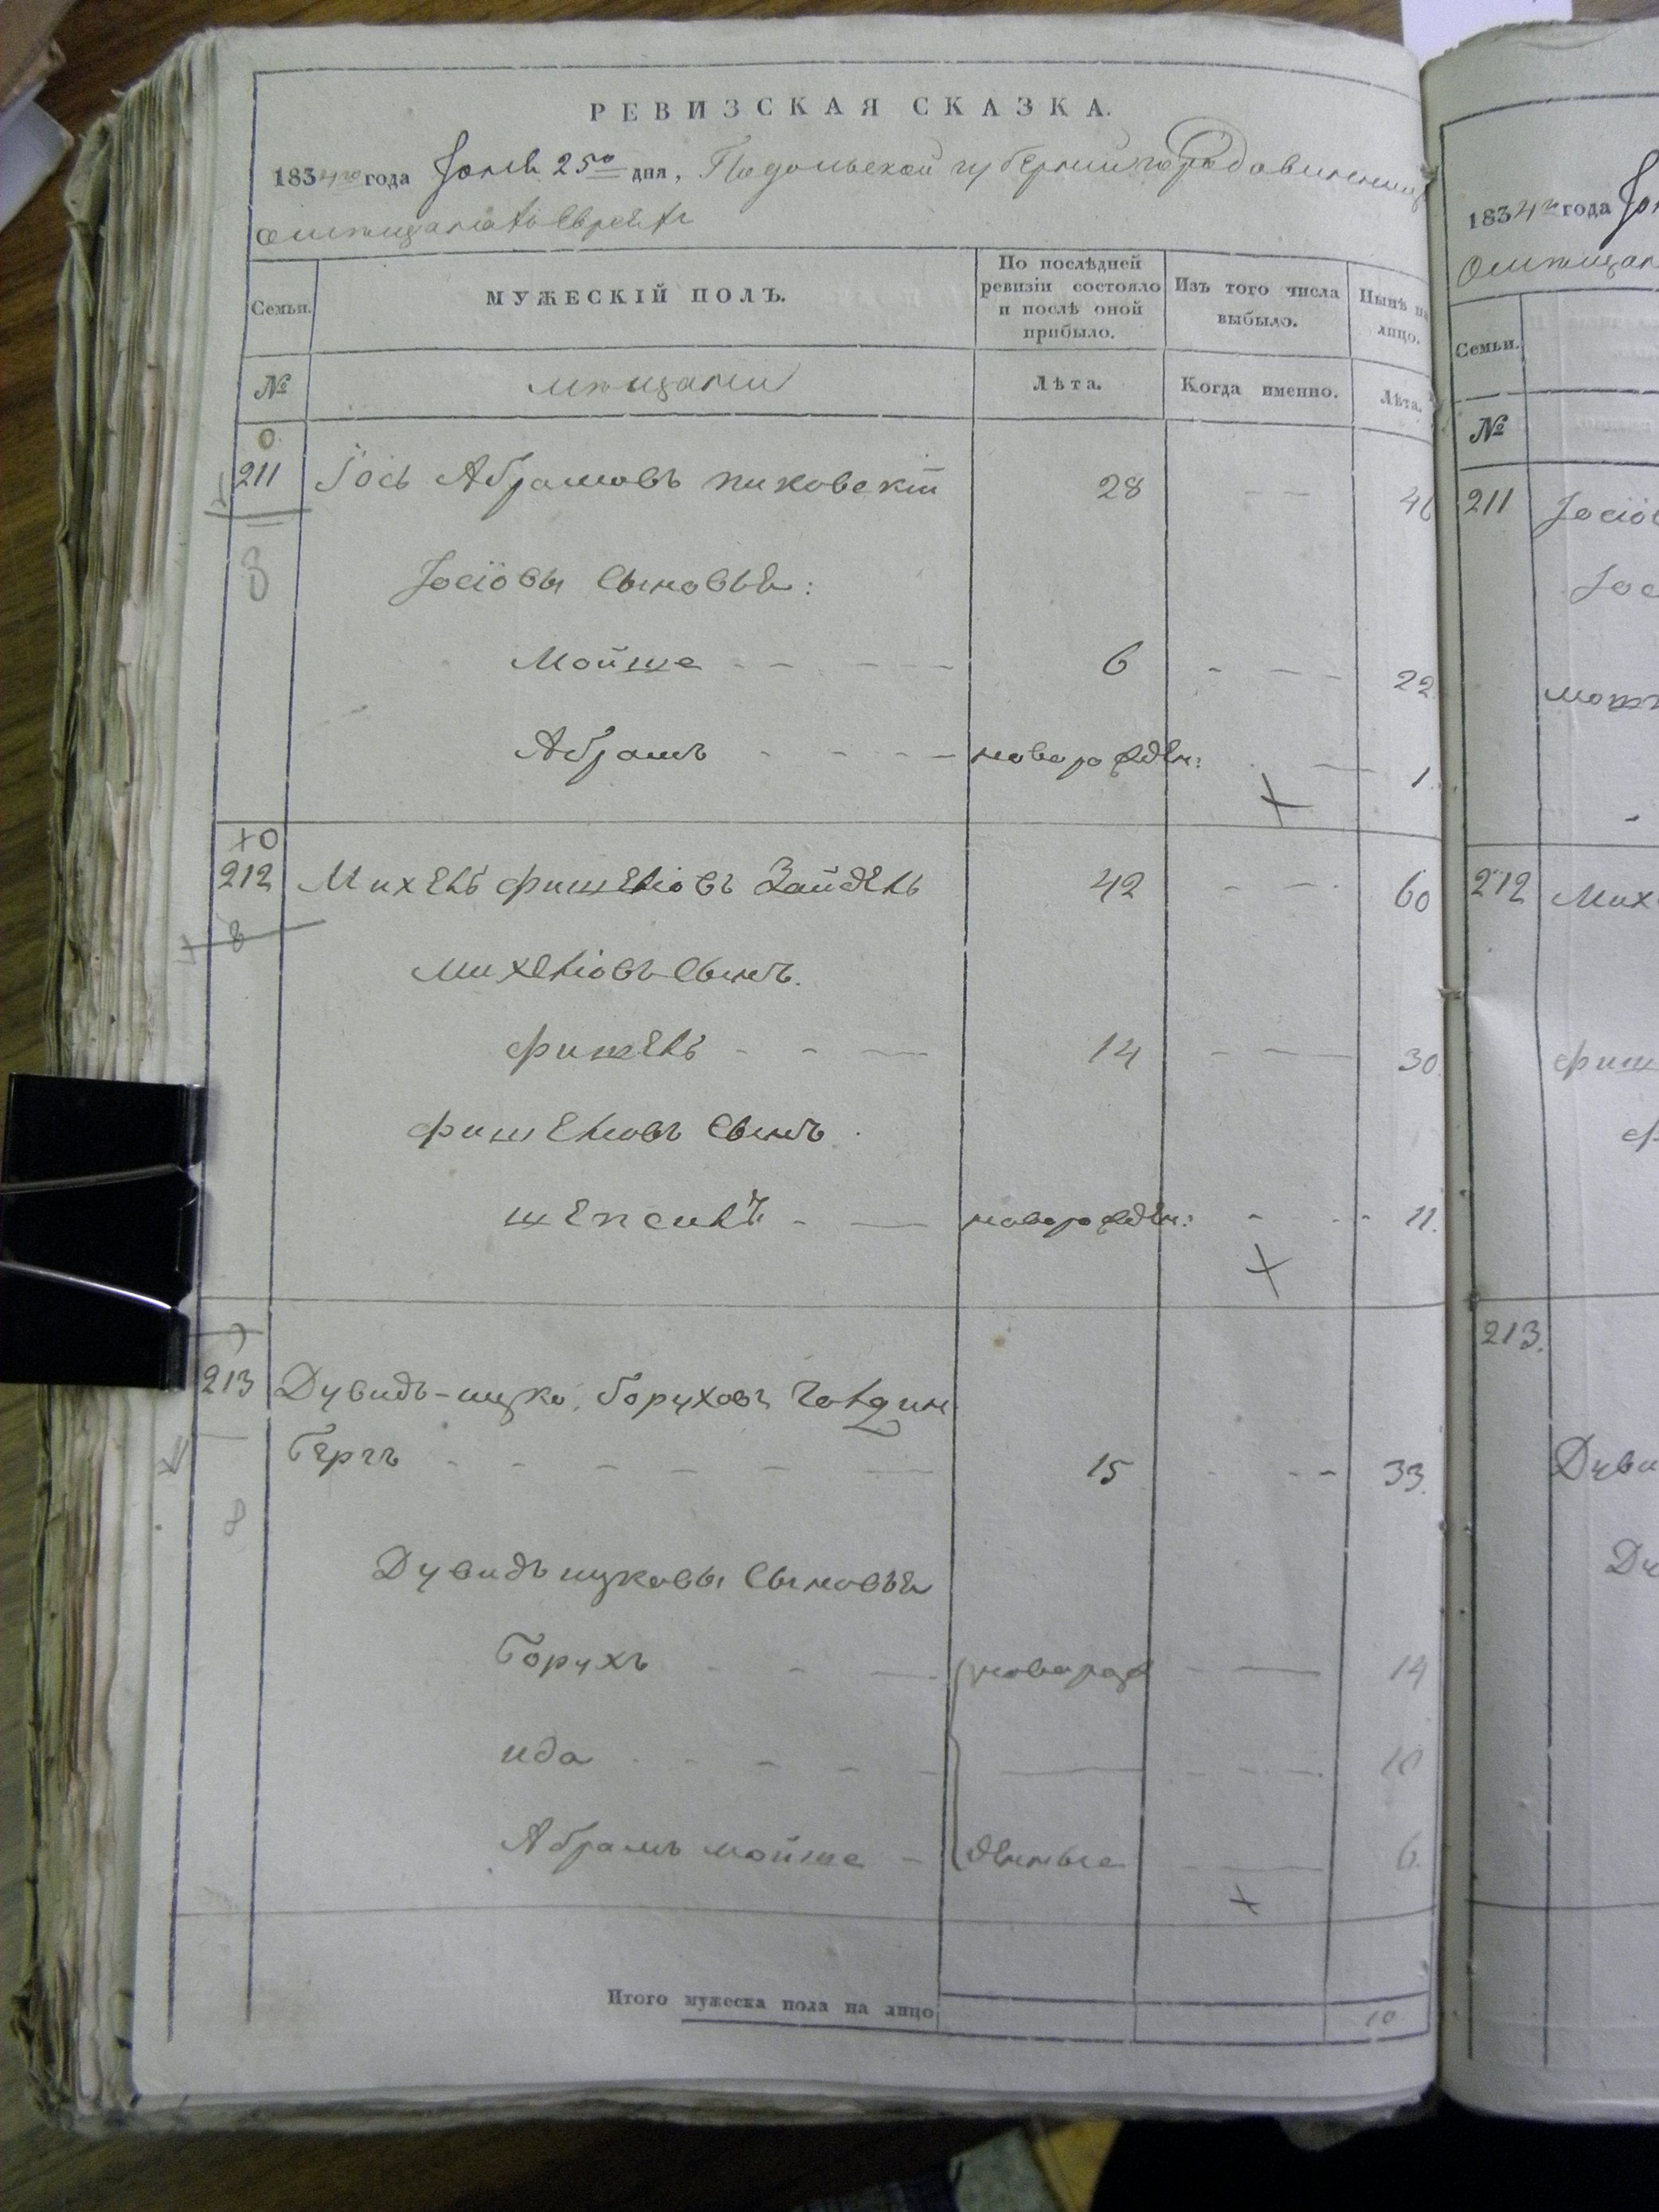 РЕВИЗСКАЯ СКАЗКА.
1834го года Іюня 25го дня, Подольской губерніи города винницы
о мѣщанахъ Евреяхъ
Семьи.
МУЖЕСКІЙ ПОЛЪ.
По послѣдней ревизіи состояло и послѣ оной прибыло.
Изъ того числа выбыло.
Нынѣ на лицо.
№
мѣщани
Лѣта.
Когда именно.
Лѣта.
0
211 Іось Абрамовъ пиковскій 28 - -
8
Іосіовы Сыновья:
Мойше - - - - 6 - - - 22
Абрамъ - - - - новорожден: - 1.
+
+0
212 Михель фишеліовъ Зайдель 42 - - 60
8
михеліовъ Сынъ.
фишель - - - 14 - - 30
фишеліовъ Сынъ.
шепсиль - - новорожден: - - - 11.
+
213 Дувидъ-ицко Боруховъ Голдин
бергъ - - - - - - 15 - - - 33.
8
Дувидъ ицковы Сыновья
Борухъ - - - новорож - - 14
ида - - - - - - - - 10
Абрамъ мойше - денные - - 6.
+
Итого мужеска пола на лицо 10
1834го года
Семьи.
№
211 Іосіов
212 Мих
фиш
213.
Дуви